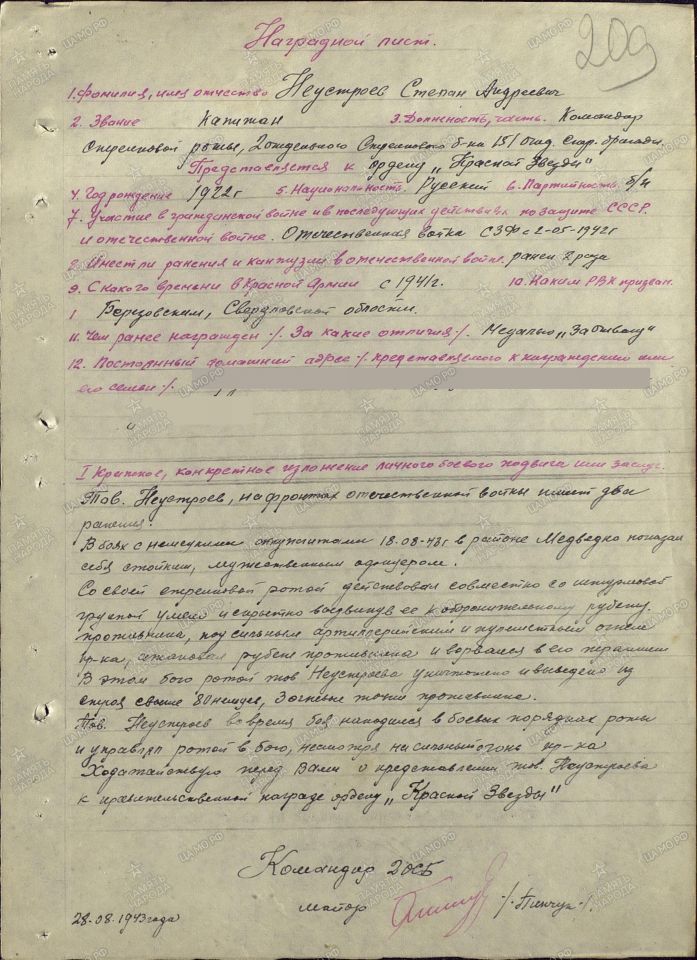 209
Наградной лист.
1. Фамилия, имя отчество Неустроев Степан Андреевич
2. Звание Капитан 3. Должность, часть. Командир
Стрелковой роты, 2 отдельного Стрелкового б-на 151 отд. Стр. бригады
Представляется к ордену „Красной Звезды"
4. Год рождение 1922 г 5. Национальность Русский 6. Партийность б/п
7. Участие в гражданской войне и в последующих действиях по защите СССР.
и отечественной войне. Отечественная война СЗФ с 2-05-1942 г
8. Имест ли ранения и контузии в отечественной войне. ранен 2 раза
9. С какого времени в Красной Армии с 1941 г. 10. Каким РВК призван.
Березовским, Свердловской области.
11. Чем ранее награжден ·/. За какие отличия ·/. Медалью „За отвагу"
12. Постоянный домашний адрес ·/. представляемого к награждению или
его семьи ·/.
I Краткое, конкретное изложение личного боевого подвига или заслуг.
Тов. Неустроев, на фронтах отечественной войны имеет два
ранения.
В боях с немецкими оккупантами 18.08-43 г в районе Медведно показал
себя стойким, мужественным офицером.
Со своей стрелковой ротой действовал совместно со штурмовой
группой умело и скрытно выдвинув ее к оборонительному рубежу
противника, под сильным артиллерийским и пулеметным огнем
пр-ка, атаковал рубеж противника и ворвался в его траншеи
В этом бою ротой тов Неустроева уничтожено и выведено из
строя свыше 80 немцев, 3 огневые точки противника.
Тов. Неустроев во время боя находился в боевых порядках роты
и управлял ротой в бою, несмотря на сильный огонь пр-ка
Ходатайствую перед Вами о представлении тов. Неустроева
к правительственной награде ордену „Красной Звезды"
Командир 2 ОСБ
майор ·/. Пинчук ·/.
28.08.1943 года